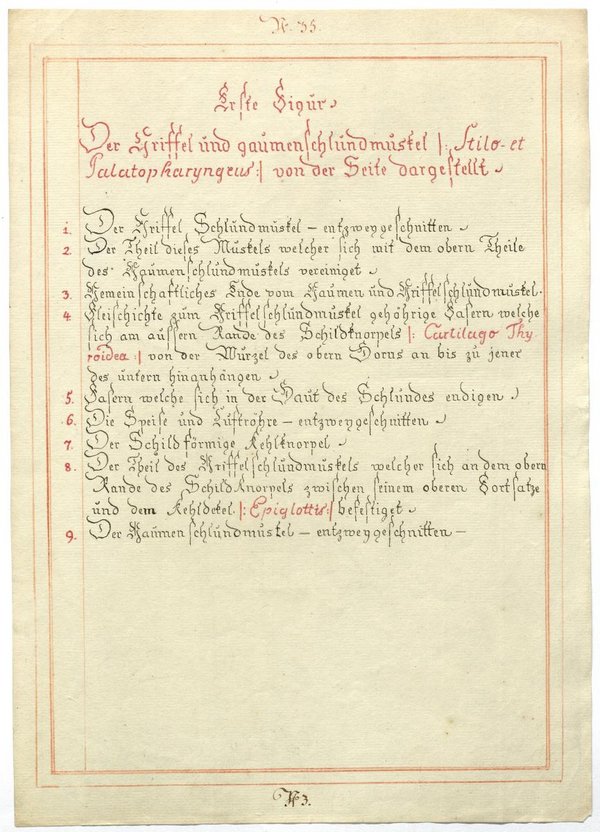 N. 35.
Erste Figur
Der Griffel und gaumenschlundmuskel |: Stilo- et
Palatopharyngeus :| von der Seite dargestellt
1. Der Griffel Schlundmuskel – entzweygeschnitten
2. Der Theil dieses Muskels welcher sich mit dem obern Theile
des Gaumenschlundmuskels vereiniget
3. Gemeinschaftliches Ende vom Gaumen und Griffelschlundmuskel.
4. Fleischichte zum Griffelschlundmuskel gehöhrige Fasern welche
sich am aussern Rande des Schildknorpels |: Cartilago Thy
roidea :| von der Wurzel des obern Horns an bis zu jener
des untern hinanhängen
5. Fasern welche sich in der Haut des Schlundes endigen
6. Die Speise und Luftröhre – entzweygeschnitten
7. Der Schildförmige Kehlknorpel
8. Der Theil des Griffelschlundmuskels welcher sich an dem obern
Rande des Schildknorpels zwischen seinem oberen Fortsatze
und dem Kehldckel |: Epiglottis :| befestiget
9. Der Gaumenschlundmuskel – entzweygeschnitten –
N 3.